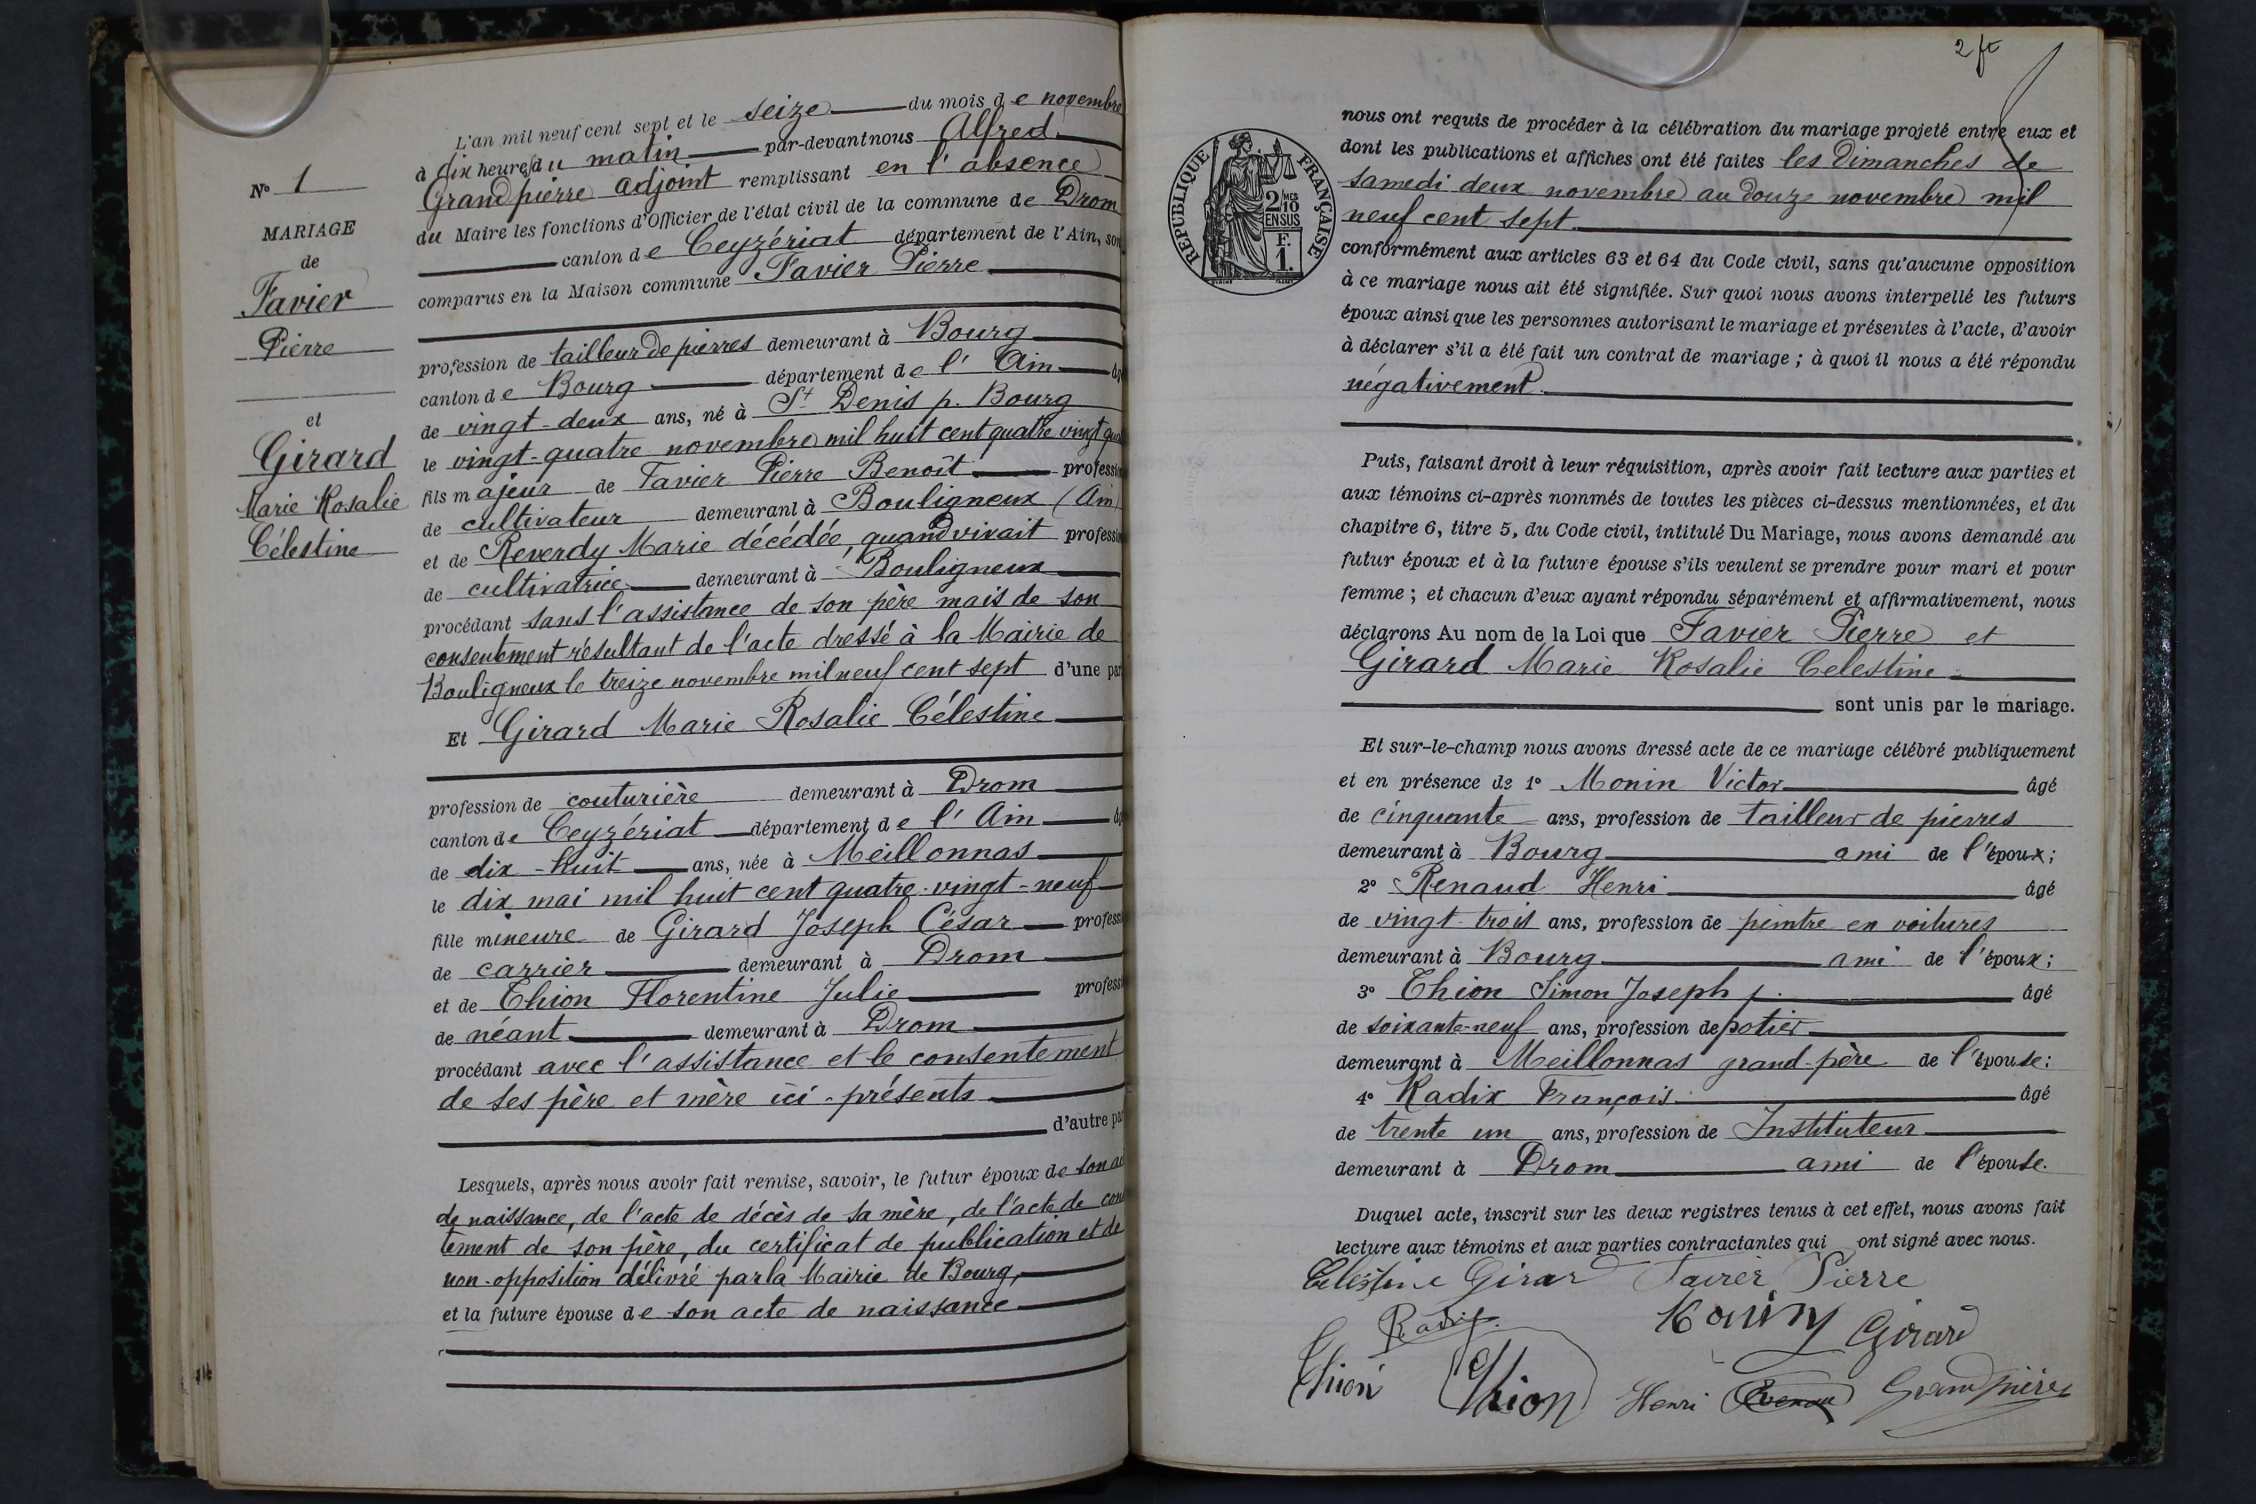 N° 1
MARIAGE
de
Favier
Pierre
et
Girard
Marie Rosalie
Célestine
L'an mil neuf cent sept et le seize du mois de novembre
à dix heures du matin par-devant nous Alfred
Grandpierre adjoint remplissant en l'absence
du Maire les fonctions d'Officier de l'état civil de la commune de Drom
canton de Ceyzériat département de l'Ain, sont
comparus en la Maison commune Favier Pierre
profession de tailleur de pierres demeurant à Bourg
canton de Bourg département de l'Ain
de vingt-deux ans, né à St Denis p. Bourg
le vingt-quatre novembre mil huit cent quatre vingt
fils majeur de Favier Pierre Benoît profession
de cultivateur demeurant à Bouligneux (Ain)
et de Reverdy Marie décédée, quand vivait profession
de cultivatrice demeurant à Bouligneux
procédant sans l'assistance de son père mais de son
consentement résultant de l'acte dressé à la Mairie de
Bouligneux le treize novembre mil neuf cent sept d'une part
Et Girard Marie Rosalie Célestine
profession de couturière demeurant à Drom
canton de Ceyzériat département de l'Ain
de dix-huit ans, née à Meillonnas
le dix mai mil huit cent quatre-vingt-neuf
fille mineure de Girard Joseph César profession
de carrier demeurant à Drom
et de Thion Florentine Julie profession
de néant demeurant à Drom
procédant avec l'assistance et le consentement
de ses père et mère ici-présents
d'autre part
Lesquels, après nous avoir fait remise, savoir, le futur époux de son
de naissance, de l'acte de décès de sa mère, de l'acte de
tement de son père, du certificat de publication et de
non-opposition délivré par la Mairie de Bourg,
et la future épouse de son acte de naissance
2 ft
RÉPUBLIQUE FRANÇAISE
2/10
MES
EN SUS
F.
1.
nous ont requis de procéder à la célébration du mariage projeté entre eux et
dont les publications et affiches ont été faites les Dimanches de
samedi deux novembre au douze novembre mil
neuf cent sept
conformément aux articles 63 et 64 du Code civil, sans qu'aucune opposition
à ce mariage nous ait été signifiée. Sur quoi nous avons interpellé les futurs
époux ainsi que les personnes autorisant le mariage et présentes à l'acte, d'avoir
à déclarer s'il a été fait un contrat de mariage ; à quoi il nous a été répondu
négativement
Puis, faisant droit à leur réquisition, après avoir fait lecture aux parties et
aux témoins ci-après nommés de toutes les pièces ci-dessus mentionnées, et du
chapitre 6, titre 5, du Code civil, intitulé Du Mariage, nous avons demandé au
futur époux et à la future épouse s'ils veulent se prendre pour mari et pour
femme ; et chacun d'eux ayant répondu séparément et affirmativement, nous
déclarons Au nom de la Loi que Favier Pierre et
Girard Marie Rosalie Celestine
sont unis par le mariage.
Et sur-le-champ nous avons dressé acte de ce mariage célébré publiquement
et en présence de 1° Monin Victor âgé
de cinquante ans, profession de tailleur de pierres
demeurant à Bourg ami de l'époux ;
2° Renaud Henri âgé
de vingt-trois ans, profession de peintre en voitures
demeurant à Bourg ami de l'époux ;
3° Thion Simon Joseph p. âgé
de soixante-neuf ans, profession de potier
demeurant à Meillonnas grand-père de l'épouse :
4° Radix François âgé
de trente un ans, profession de Instituteur
demeurant à Drom ami de l'épouse.
Duquel acte, inscrit sur les deux registres tenus à cet effet, nous avons fait
lecture aux témoins et aux parties contractantes qui ont signé avec nous.
Célestine Girard Favier Pierre
Radix Girard
Thion Thion Henri Grandpierre